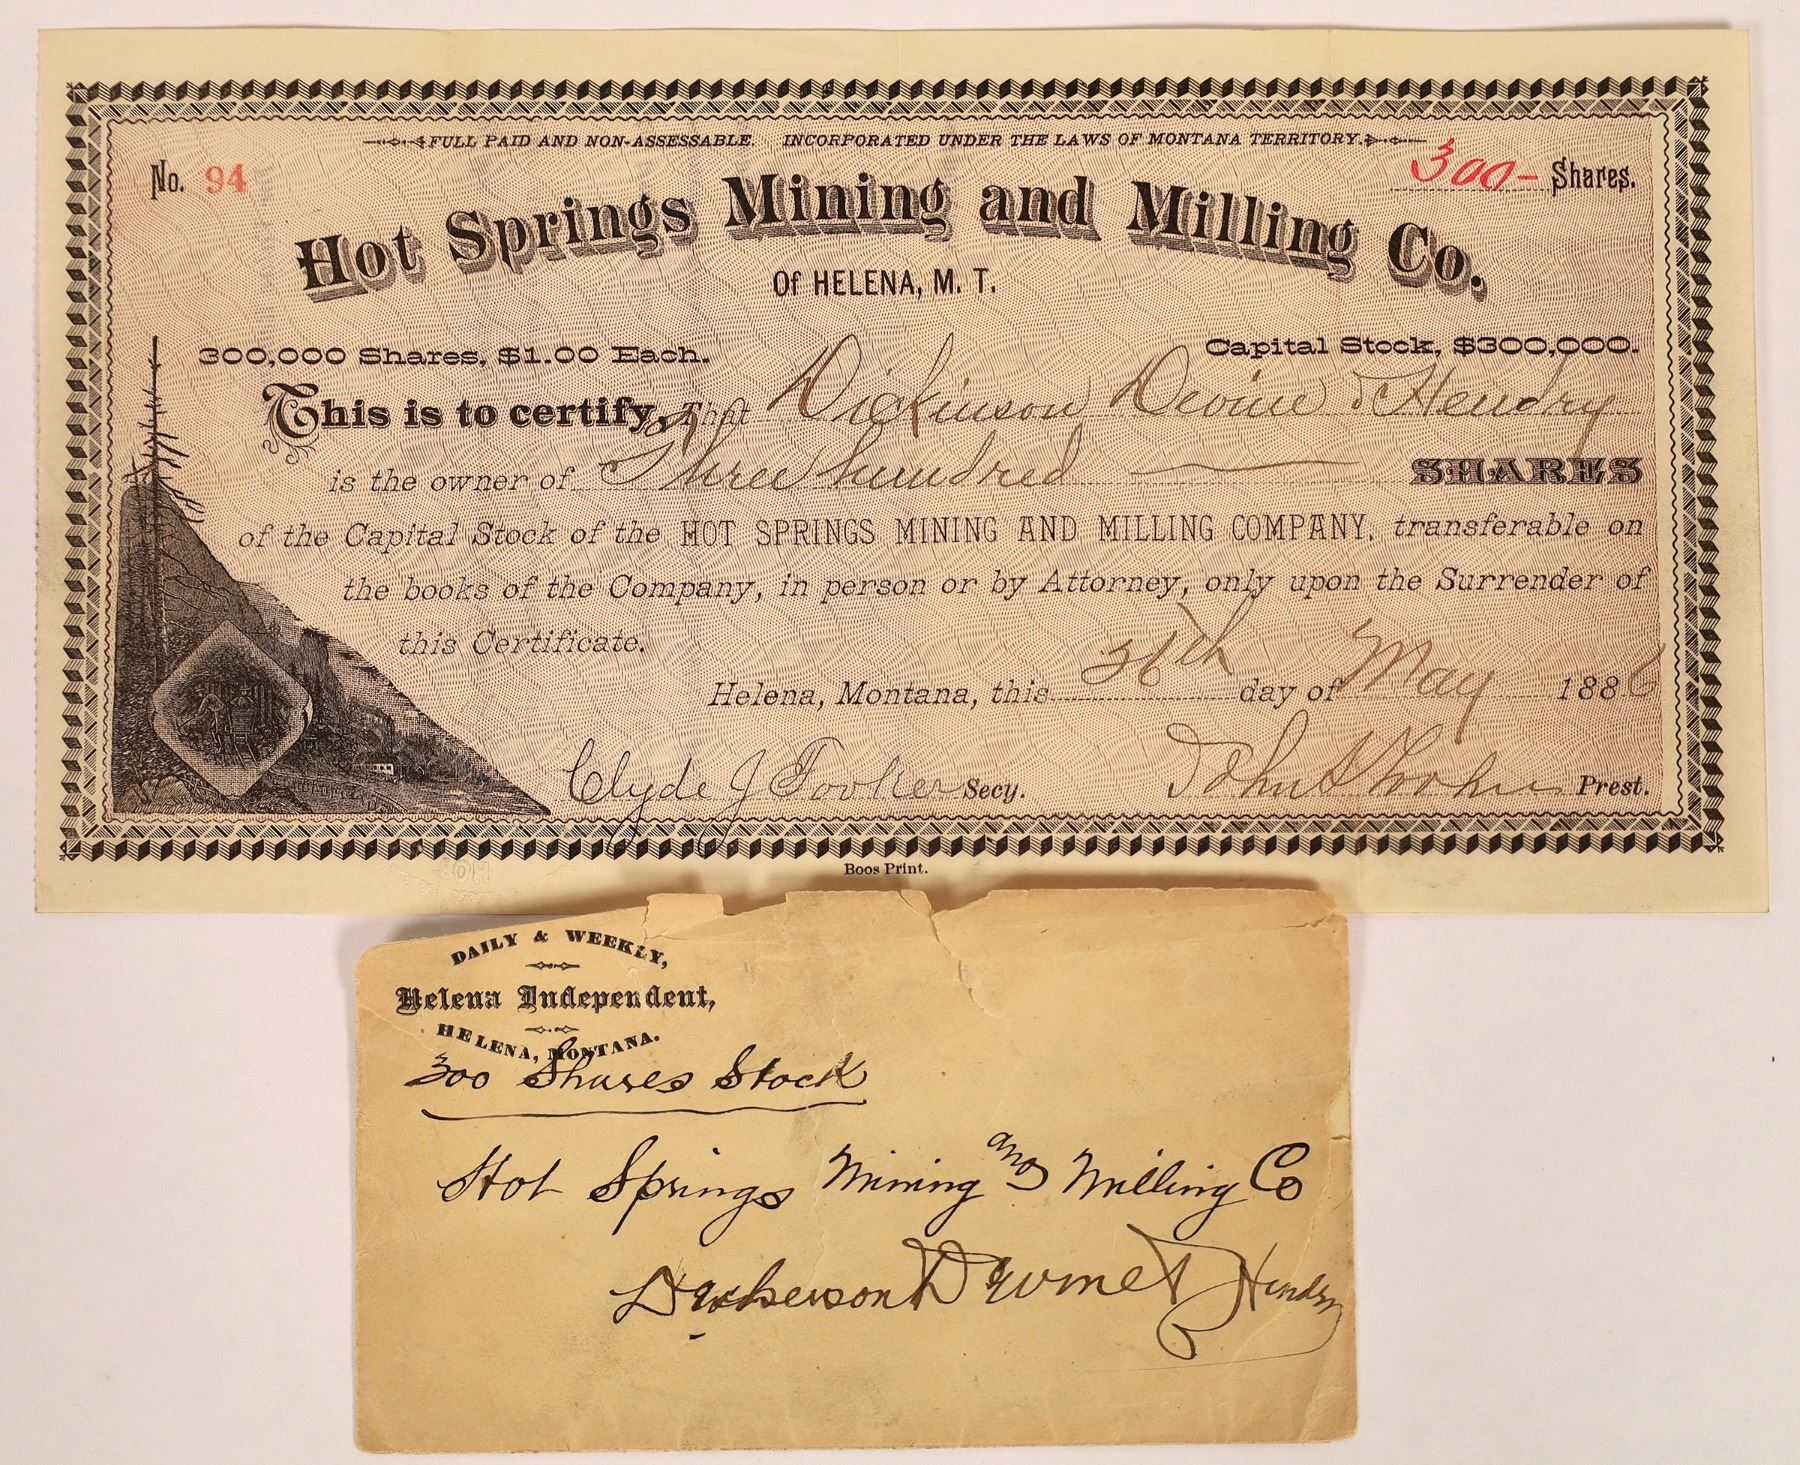 FULL PAID AND NON-ASSESSABLE. INCORPORATED UNDER THE LAWS OF MONTANA TERRITORY.
No. 94
300- Shares.
Hot Springs Mining and Milling Co.
Of HELENA, M. T.
300,000 Shares, $1.00 Each. Capital Stock, $300,000.
This is to certify, That Dickinson Devine & Hendry
is the owner of Three hundred SHARES
of the Capital Stock of the HOT SPRINGS MINING AND MILLING COMPANY, transferable on
the books of the Company, in person or by Attorney, only upon the Surrender of
this Certificate.
Helena, Montana, this 26th day of May 1886
Clyde J Tooker Secy. John S Tooker Prest.
Boos Print.
DAILY & WEEKLY,
Helena Independent,
HELENA, MONTANA.
300 Shares Stock
Hot Springs Mining and Milling Co
Dickerson Devine & Hendry